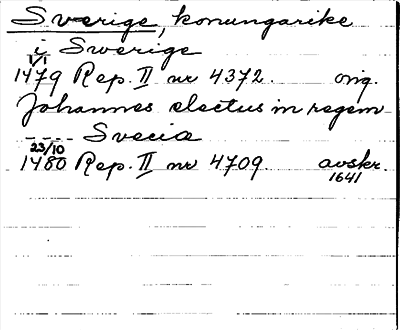 Sverige, konungarike
i Swerige
1/1
1479 Rep. II nr 4372. orig.
Johannes electus in regem
---- Svecia
23/10
1480 Rep. II nr 4709. avskr.
1641